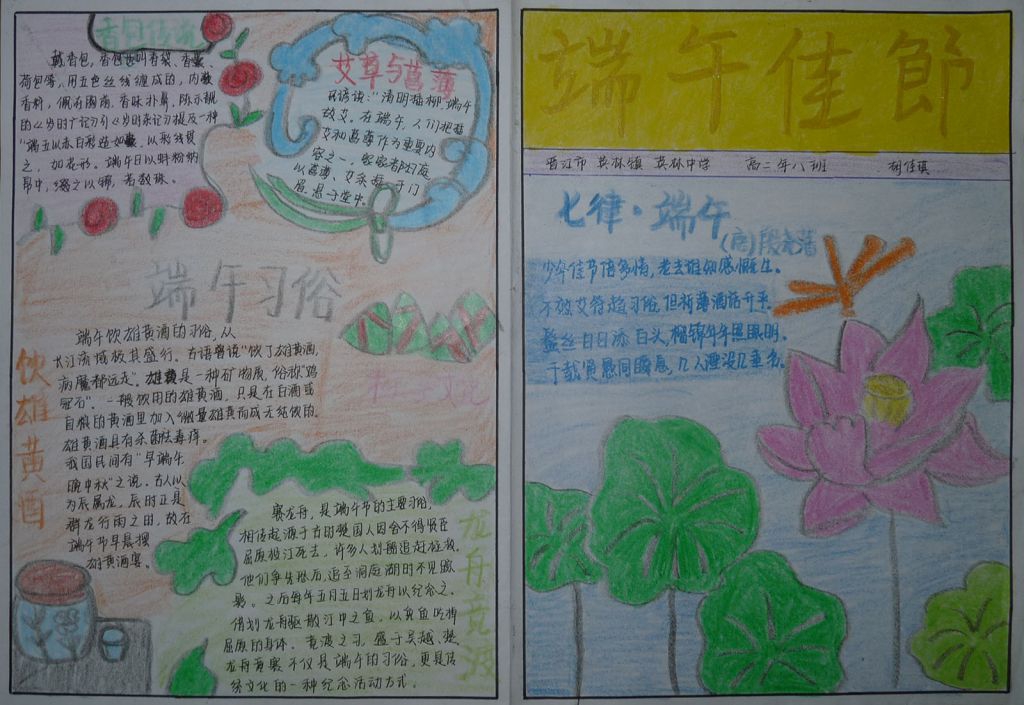 香包传说
戴香包,香包也叫香袋、香囊、
荷包等,用五色丝线缠成的,内装
香料,佩在胸前,香味扑鼻。陈示靓
的《岁时广记》引《岁时杂记》提及一种
"端五以赤白彩造如囊,以彩线贯
之,如花形。
艾草与菖蒲
民谚说:"清明插柳,端午
插艾。在端午,人们把插
艾和菖蒲作为重要内
容之一。家家都扫庭
以菖蒲、艾条插于门
眉,悬于堂中。
端午习俗
饮雄黄酒
端午饮雄黄酒的习俗,从
长江流域极其盛行。古语曾说"饮了雄黄酒,
病魔都远走"。雄黄是一种矿物质,俗称"鸡
冠石",一般饮用的雄黄酒,只是在白酒或
自酿的黄酒里加入微量雄黄而成无纯饮的。
雄黄酒具有杀菌祛毒痒。
我国民间有"早端午
晚中秋"之说,古人以
为辰属龙,辰时正是
群龙行雨之时,故在
端午节早晨摆
雄黄酒宴。
龙舟竞渡
赛龙舟,是端午节的主要习俗,
相传起源于古时楚国人因舍不得贤臣
屈原投江死去,许多人划船追赶拯救。
他们争先恐后,追至洞庭湖时不见踪
影。之后每年五月五日划龙舟以纪念之。
借划龙舟驱散江中之鱼,以免鱼吃掉
屈原的身体。竞渡之习,盛于吴、越、楚。
龙舟竞赛不仅是端午的习俗,更是传
统文化的一种纪念活动方式。
端午佳節
晋江市 英林镇 英林中学 高二年八班
七律·端午
(唐)段尧藩
少年佳节倍多情,老去谁知感慨生。
不效艾符趋习俗,但祈蒲酒话升平。
鬓丝日日添白头,榴锦年年照眼明。
千载贤愚同瞬息,几人湮没几垂名。